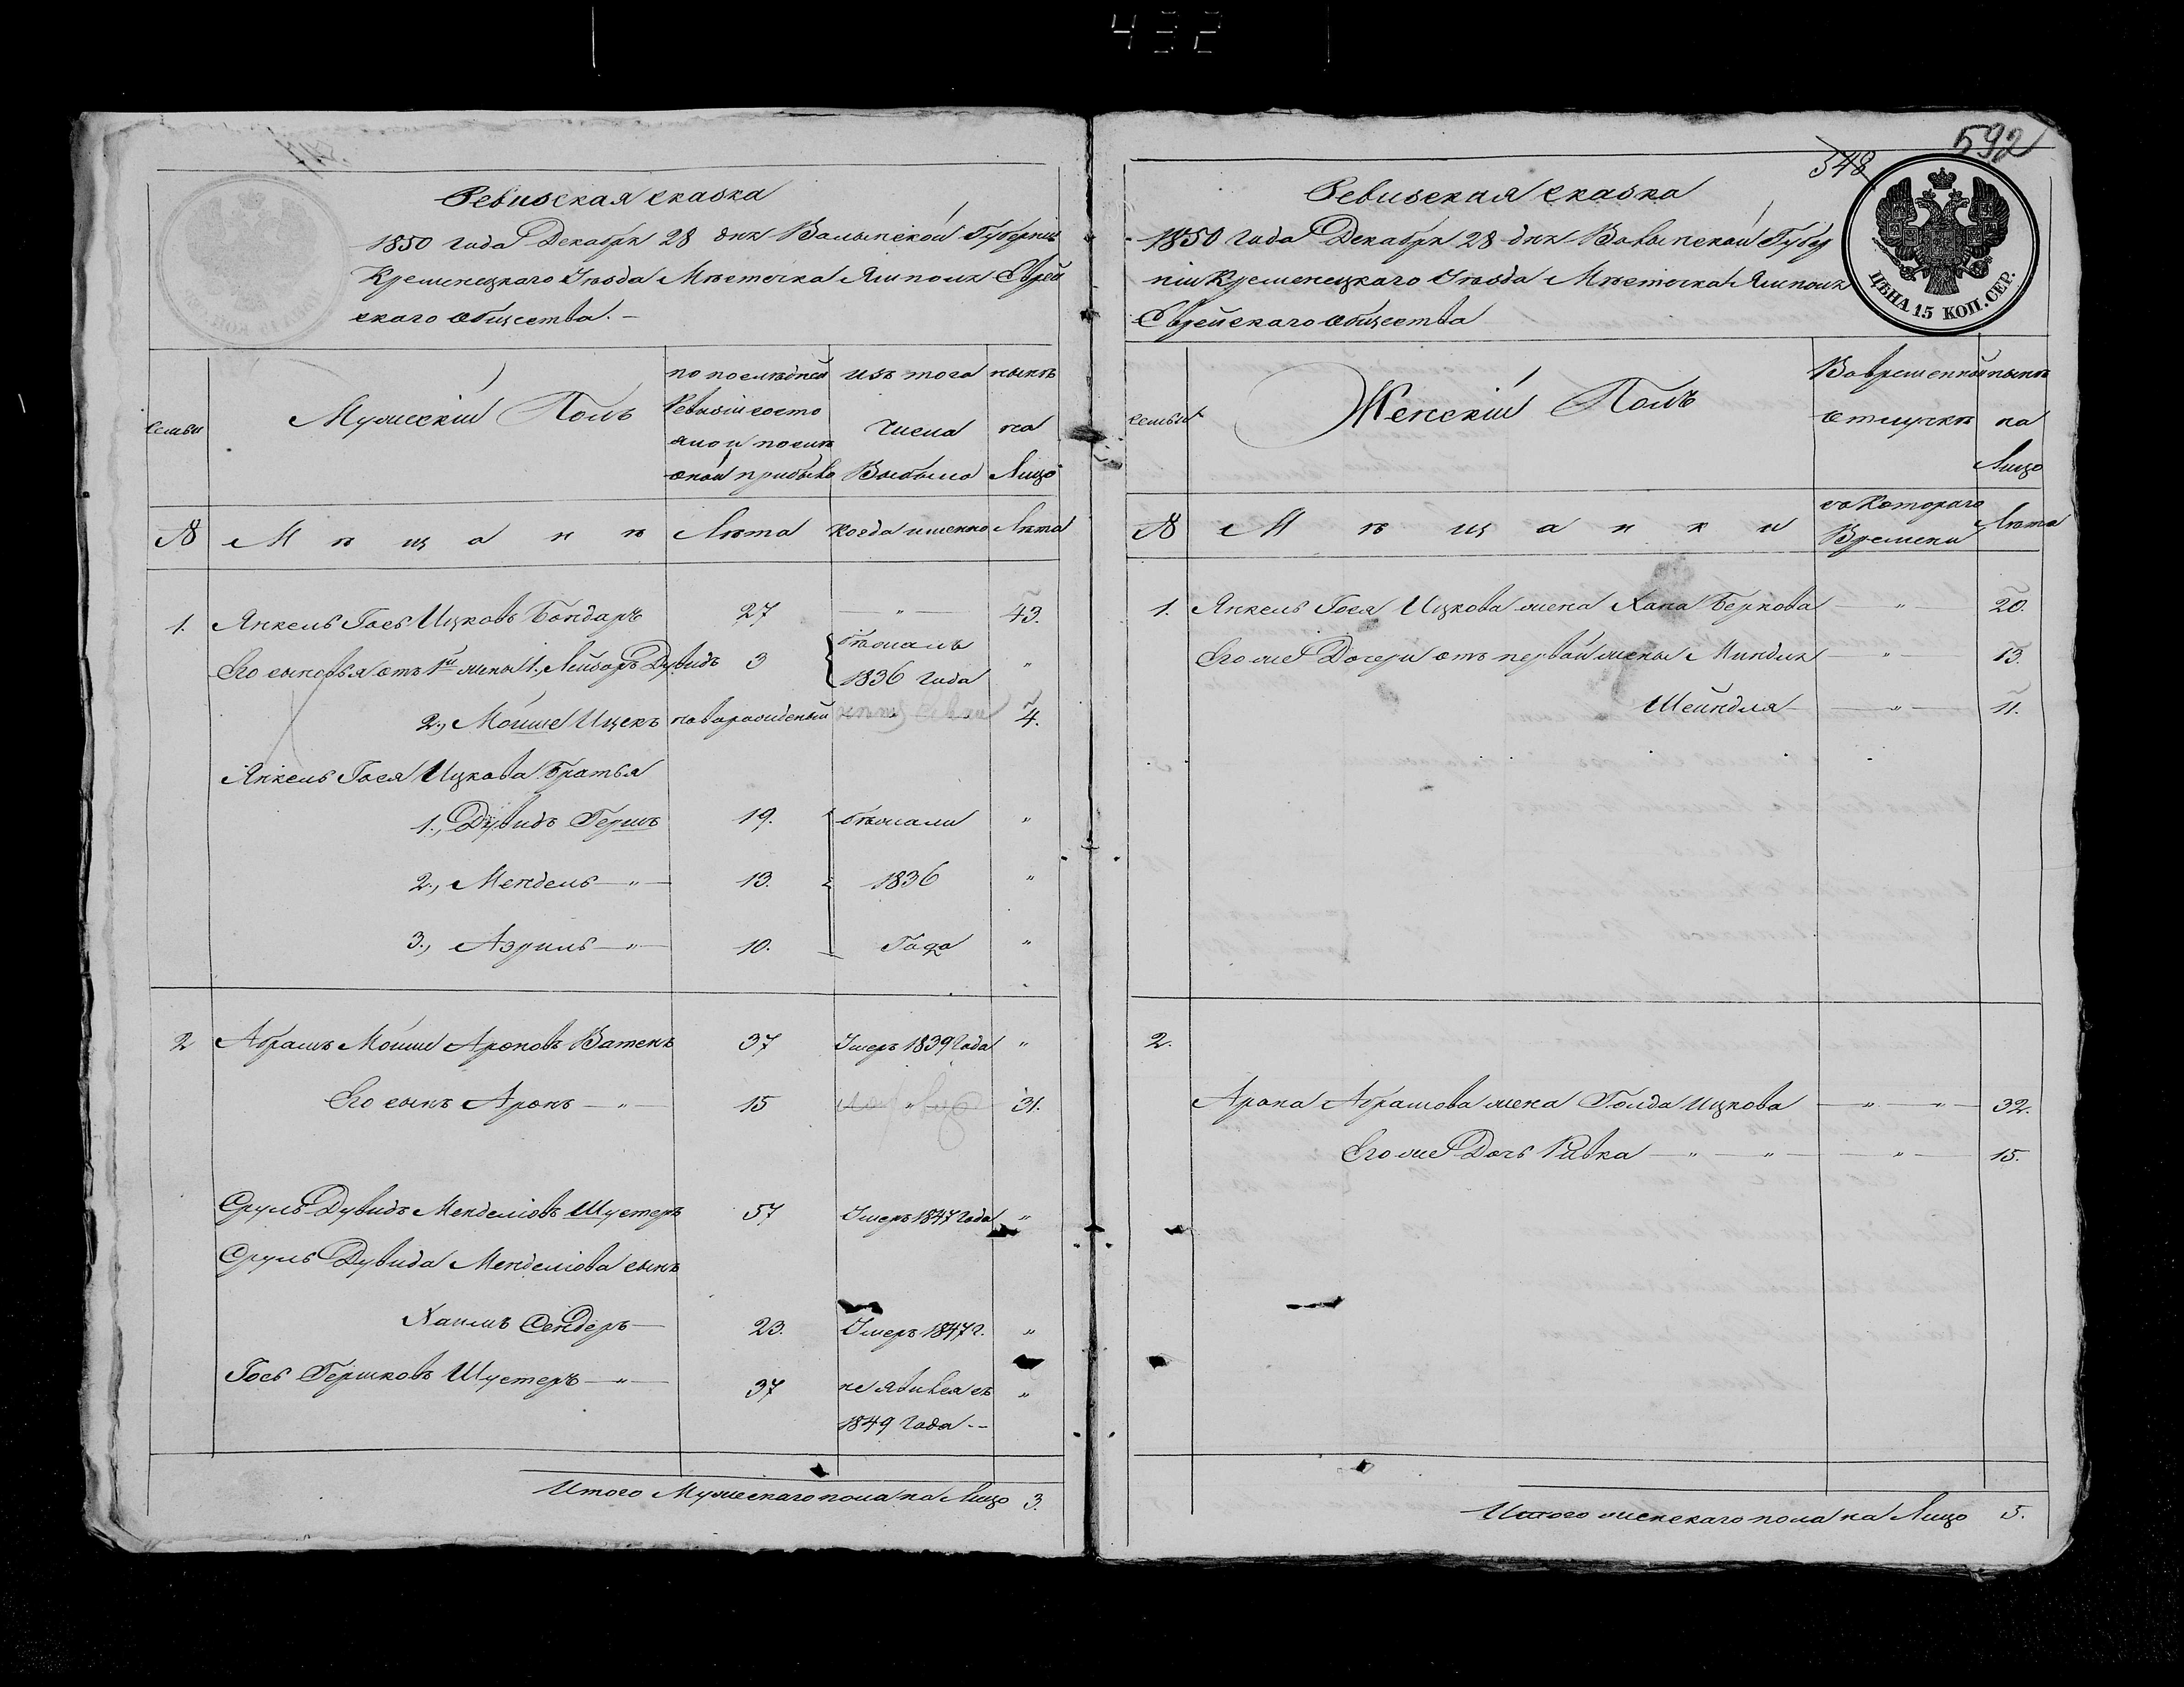 432
Ревизская сказка
1850 года Декабря 28 дня Волынской Губерніи
Кременецкаго Уѣзда Мѣстечка Ямполя Еврей
скаго Общества.
семьи
Мужескій Полъ
по послѣдней
Ревизіи состо
яло и послѣ
оной прибыло
изъ того
числа
Выбыло
нынѣ
на
Лицо
№
Мѣщане
Лѣта
Когда именно
Лѣта
1. Янкель Гось Ицковъ Бондаръ 27 — " — 43.
Его сыновья отъ 1й жены 1., Лейзоръ Дувидъ 3 бѣжалъ 1836 года "
2., Мойше Ицекъ новорожденый 4.
Янкель Гося Ицкова Братья
1., Дувидъ Гершъ 19. бѣжали "
2., Мендель — " — 13. 1836 "
3., Азриль — " — 10. Года "
2 Абрамъ Мойше Ароновъ Ватенъ 37 Умеръ 1839 года "
Его сынъ Аронъ — " — 15 " 31.
Сруль Дувидъ Менделіовъ Шустеръ 57 Умеръ 1847 года "
Сруль Дувида Менделіова сынъ
Хаимъ Сендеръ — 23. Умеръ 1847 г. "
Гось Гершковъ Шустеръ — " — 37 не явился съ "
1849 года --
Итого Мужескаго пола на Лицо 3.
592
348
ЦѢНА 15 КОП. СЕР.
Ревизская сказка
1850 года Декабря 28 дня Волынской Губер
ніи Кременецкаго Уѣзда Мѣстечка Ямполя
Еврейскаго Общества
семьи
Женскій Полъ
Во временной
отлучкѣ
нынѣ
на
Лицо
№
Мѣщанки
съ Котораго
Времени
Лѣта
1. Янкель Гося Ицкова жена Хана Беркова — " — 20.
Его же Дочери отъ первой жены Миндля — " — 13.
Шейндля — " — 11.
2.
Арона Абрамова жена Голда Ицкова — " — " — 32.
Его же Дочь Ривка — " — " — " — 15.
Итого женскаго пола на Лицо 5.